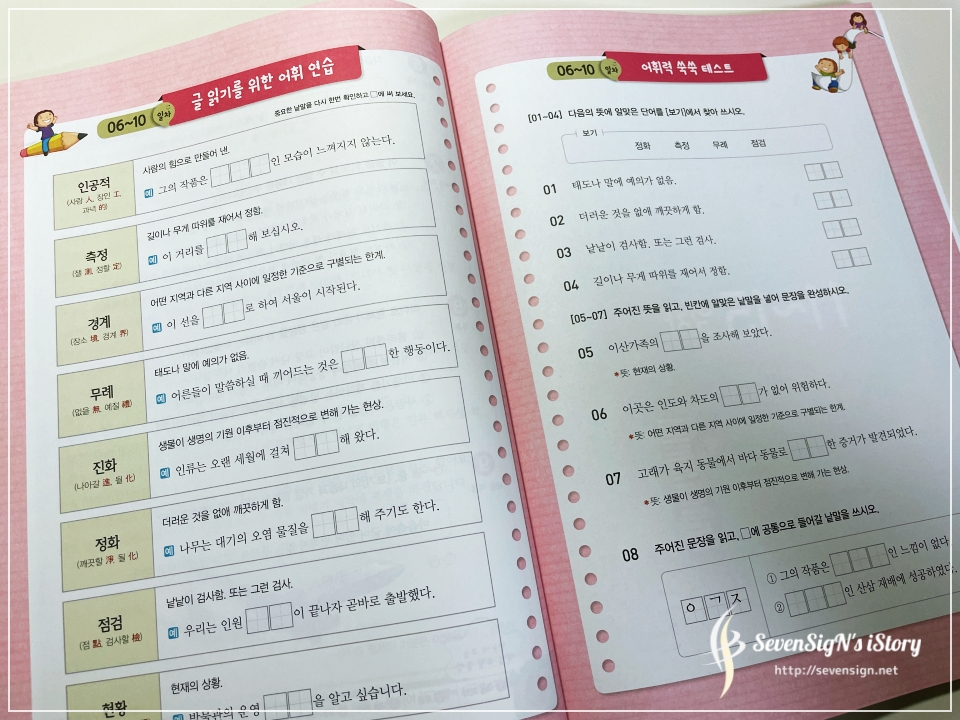 06~10 일차
글 읽기를 위한 어휘 연습
중요한 낱말을 다시 한번 확인하고 □에 써 보세요.
인공적
(사람 人, 장인 工,
과녁 的)
사람의 힘으로 만들어 낸.
예 그의 작품은 □□□인 모습이 느껴지지 않는다.
측정
(잴 測, 정할 定)
길이나 무게 따위를 재어서 정함.
예 이 거리를 □□해 보십시오.
경계
(장소 境, 경계 界)
어떤 지역과 다른 지역 사이에 일정한 기준으로 구별되는 한계.
예 이 선을 □□로 하여 서울이 시작된다.
무례
(없을 無, 예절 禮)
태도나 말에 예의가 없음.
예 어른들이 말씀하실 때 끼어드는 것은 □□한 행동이다.
진화
(나아갈 進, 될 化)
생물이 생명의 기원 이후부터 점진적으로 변해 가는 현상.
예 인류는 오랜 세월에 걸쳐 □□해 왔다.
정화
(깨끗할 淨, 될 化)
더러운 것을 없애 깨끗하게 함.
예 나무는 대기의 오염 물질을 □□해 주기도 한다.
점검
(점 點, 검사할 檢)
낱낱이 검사함. 또는 그런 검사.
예 우리는 인원 □□이 끝나자 곧바로 출발했다.
현황
현재의 상황.
예 박물관의 운영 □□을 알고 싶습니다.
06~10 일차
어휘력 쑥쑥 테스트
[01~04] 다음의 뜻에 알맞은 단어를 [보기]에서 찾아 쓰시오.
보기
정화 측정 무례 점검
01 태도나 말에 예의가 없음. □□
02 더러운 것을 없애 깨끗하게 함. □□
03 낱낱이 검사함. 또는 그런 검사. □□
04 길이나 무게 따위를 재어서 정함. □□
[05~07] 주어진 뜻을 읽고, 빈칸에 알맞은 낱말을 넣어 문장을 완성하시오.
05 이산가족의 □□을 조사해 보았다.
*뜻: 현재의 상황.
06 이곳은 인도와 차도의 □□가 없어 위험하다.
*뜻: 어떤 지역과 다른 지역 사이에 일정한 기준으로 구별되는 한계.
07 고래가 육지 동물에서 바다 동물로 □□한 증거가 발견되었다.
*뜻: 생물이 생명의 기원 이후부터 점진적으로 변해 가는 현상.
08 주어진 문장을 읽고, □에 공통으로 들어갈 낱말을 쓰시오.
ㅇ ㄱ ㅈ
① 그의 작품은 □□□인 느낌이 없다.
② □□□인 산삼 재배에 성공하였다.
SevenSigN's iStory
http://sevensign.net